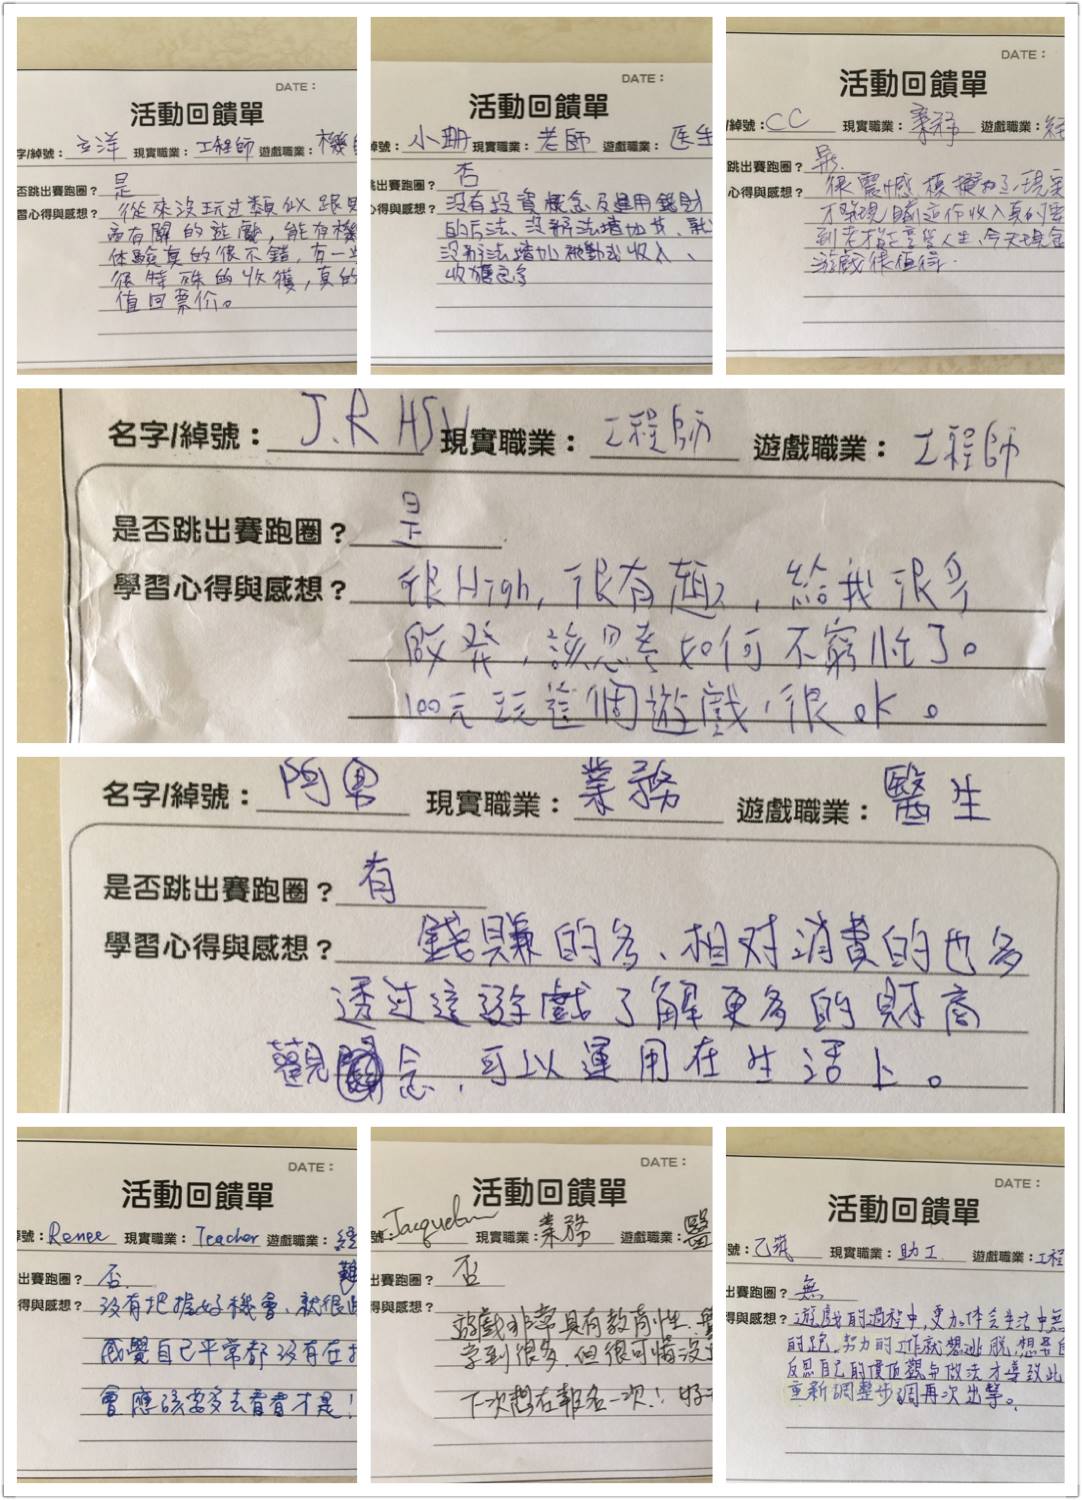 DATE：
活動回饋單
字/綽號：立洋 現實職業：工程師 遊戲職業：機
否跳出賽跑圈？是
習心得與感想？從來沒玩过類似跟
有關的遊戲，能有機
体驗真的很不錯，有一
很特殊的收獲，真的
值回票价。
DATE：
活動回饋單
號：小珊 現實職業：老師 遊戲職業：医生
出賽跑圈？否
心得與感想？沒有投資概念及運用錢財
的方法、沒辦法增加其、
沒辦法增加被動式收入、
收穫良多
DATE：
活動回饋單
/綽號：CC 現實職業：業務 遊戲職業：
跳出賽跑圈？是.
心得與感想？很震憾 模擬了現
才發現
到老 享受人生、今天現金
遊戲很值得.
名字/綽號：J.R HSU 現實職業：工程師 遊戲職業：工程師
是否跳出賽跑圈？是
學習心得與感想？很High, 很有趣，給我很多
啟発，該思考如何不窮忙了。
100元玩這個遊戲，很ok。
名字/綽號：阿男 現實職業：業務 遊戲職業：醫生
是否跳出賽跑圈？有
學習心得與感想？錢賺的多、相对消費的也多
透过這遊戲了解更多的財商
觀念，可以運用在生活上。
DATE：
活動回饋單
號：Renee 現實職業：Teacher 遊戲職業：経
出賽跑圈？否.
得與感想？沒有把握好機會、就很
感覺自己平常都沒有在
會應該要多去看看才是！
DATE：
活動回饋單
號：Jacquelin 現實職業：業務 遊戲職業：醫
出賽跑圈？否
得與感想？遊戲非常具有教育性、
學到很多，但很可惜沒
下次想在報名一次！
DATE：
活動回饋單
號： 現實職業：助工 遊戲職業：工程
出賽跑圈？無
得與感想？遊戲的過程中，更加体会生活中無
的跑、努力的工作就想逃脫，想
反思自己的價值觀与做法才導致此
重新調整步調再次出擊。